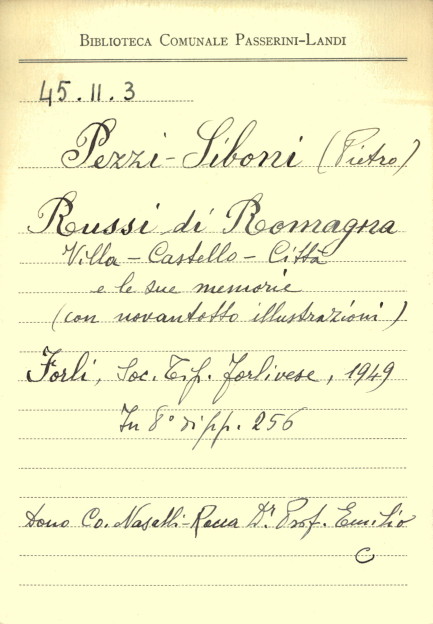 BIBLIOTECA COMUNALE PASSERINI-LANDI
45.II.3
Pezzi-Siboni (Pietro)
Russi di Romagna
Villa - Castello - Città
e le sue memorie
(con novantotto illustrazioni)
Forlì, Soc. Tip. Forlivese, 1949
In 8° di pp. 256
Dono Co. Naselli-Rocca Dr. Prof. Emilio
C